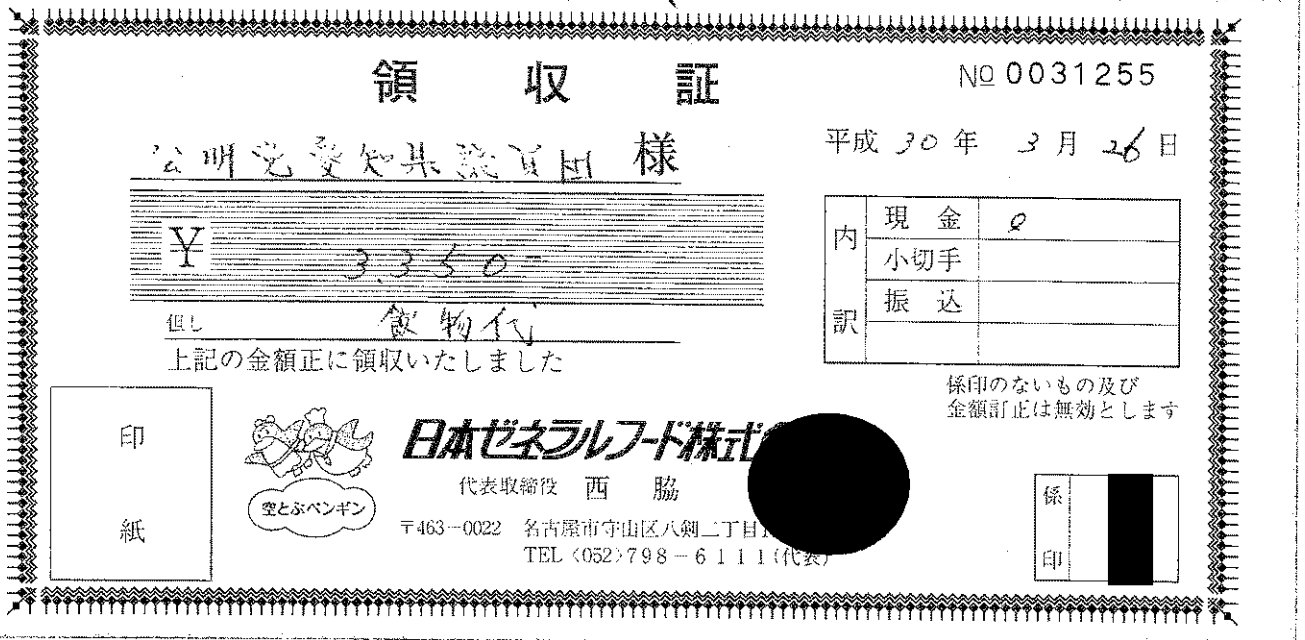 領収証
No 0031255
平成 30年 3月 26日
公明党愛知県議員団 様
¥ 3,350-
但し 飲物代
上記の金額正に領収いたしました
内訳
現金
小切手
振込
係印のないもの及び
金額訂正は無効とします
印紙
空とぶペンギン
日本ゼネラルフード株式
代表取締役 西脇
〒463-0022 名古屋市守山区八剣二丁目
TEL〈052〉798-6111(代表)
係印